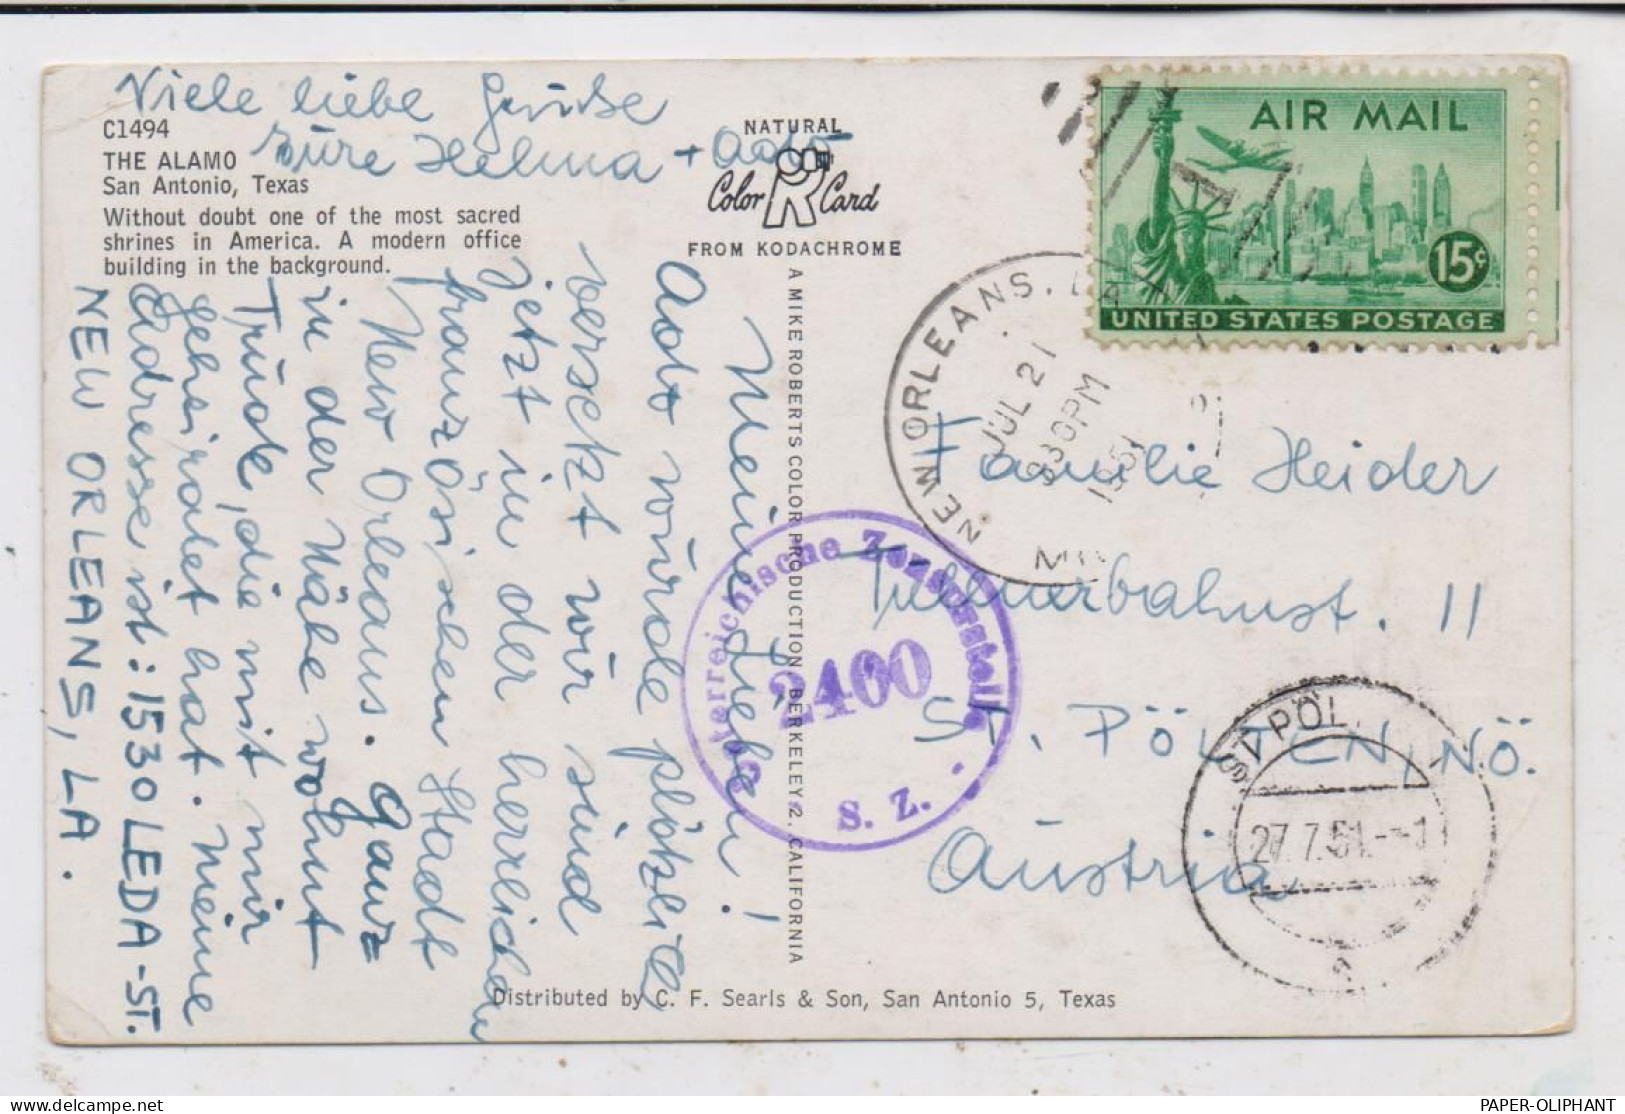 C1494
THE ALAMO
San Antonio, Texas
Without doubt one of the most sacred
shrines in America. A modern office
building in the background.
NATURAL
Color R Card
FROM KODACHROME
A MIKE ROBERTS COLOR PRODUCTION BERKELEY 2. CALIFORNIA
Distributed by C. F. Searls & Son, San Antonio 5, Texas
Meine Lieben!
Aodt würde plötzlich
versetzt wir sind
jetzt in der herrlichen
französischen Stadt
New Orleans. Ganz
in der Nähe wohnt
Trude, die mit mir
geheiratet hat. Meine
Adresse ist: 1530 LEDA-ST.
NEW ORLEANS, LA.
Viele liebe Grüsse
Eure Helma +
AIR MAIL
15¢
UNITED STATES POSTAGE
NEW ORLEANS, LA
JUL 21
930PM
1951
Familie Heider
bahnst. 11
St. PÖLTEN, NÖ.
Austria
Österreichische Zensurstelle
2400
S. Z.
ST PÖL
27.7.51.--1
PAPER-OLIPHANT